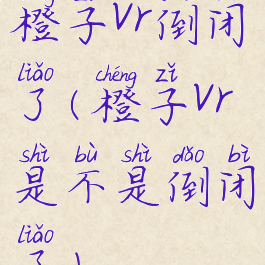 橙子Vr倒闭
liǎo chéng zǐ
了(橙子Vr
shì bù shì dǎo bì
是不是倒闭
liǎo
了)